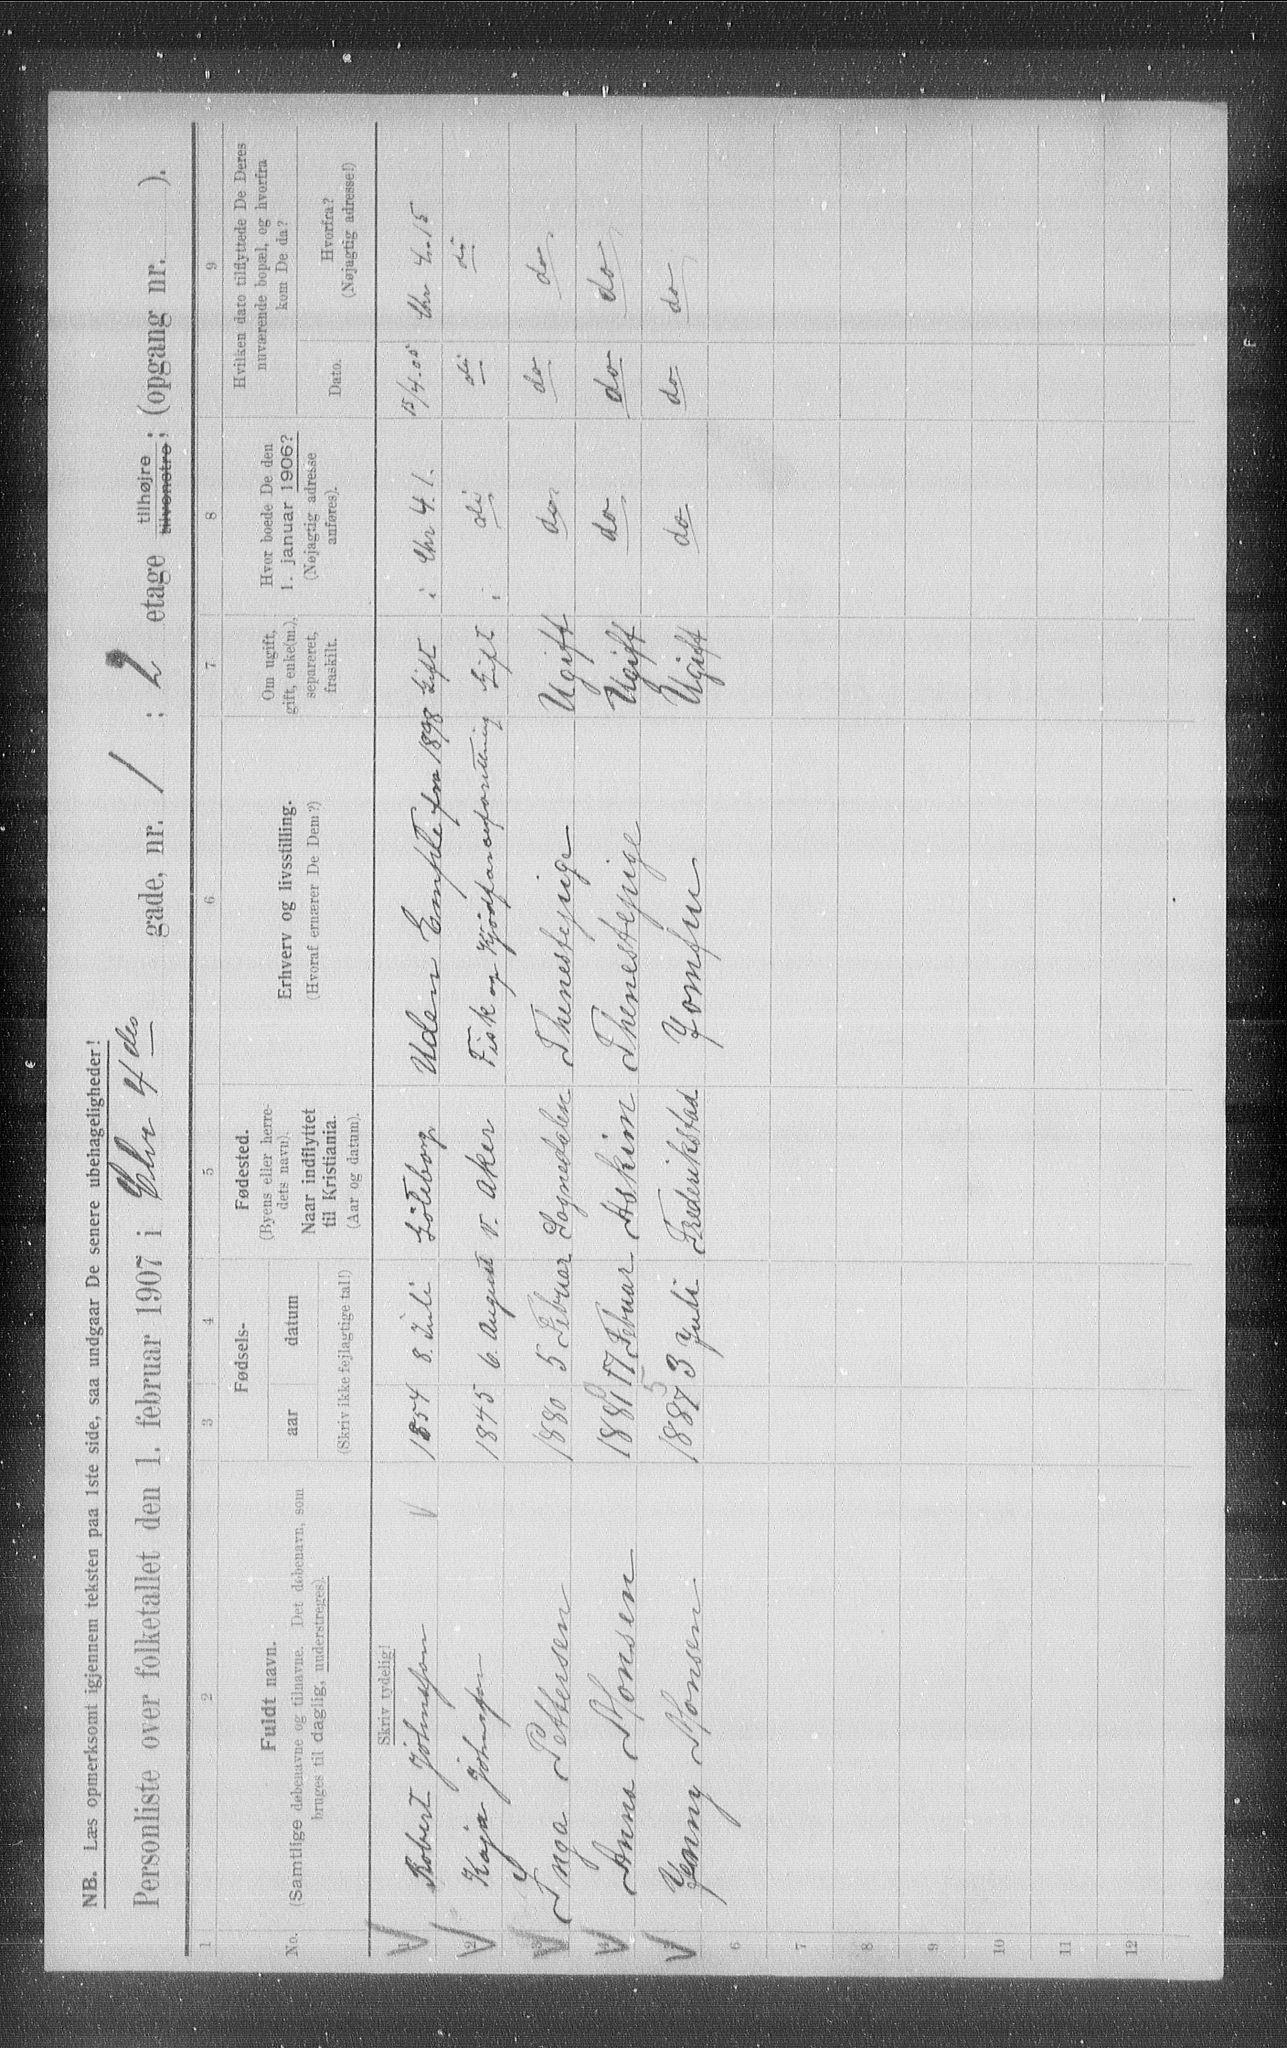 NB. Læs opmerksomt igjennem teksten paa 1ste side, saa undgaar De senere ubehageligheder!
Personliste over folketallet den 1. februar 1907 i Chr 4 des gade, nr. 1 ; 2 etage tilhøjre tilvenstre; (opgang nr. ).
1 2 3 4 5 6 7 8 9
No. Fuldt navn. (Samtlige døbenavne og tilnavne. Det døbenavn, som bruges til daglig, understreges).
Fødsels- aar datum (Skriv ikke fejlagtige tal!)
Fødested. (Byens eller herredets navn). Naar indflyttet til Kristiania. (Aar og datum).
Erhverv og livsstilling. (Hvoraf ernærer De Dem?)
Om ugift, gift, enke(m.), separeret, fraskilt.
Hvor boede De den 1. januar 1906? (Nøjagtig adresse anføres).
Hvilken dato tilflyttede De Deres nuværende bopæl, og hvorfra kom De da?
Dato. Hvorfra? (Nøjagtig adresse!)
Skriv tydelig!
1 Robert Johnson 1854 8. Juli Göteborg Uden fra 1898 Gift i Chr 4. 1. 15/4.05 Chr 4. 15
2 Kaja Johnson 1845 6. August V. Aker Fisk og Gift i di di di
3 Inga Pettersen 1880 5 Februar Sognedalen Thenestepige Ugift do do do
4 Anna Monsen 17 Februar Askim Thenestepige Ugift do do do
5 Jenny Monsen 3 Juli Frederikstad Jomfru Ugift do do do
6
7
8
9
10
11
12